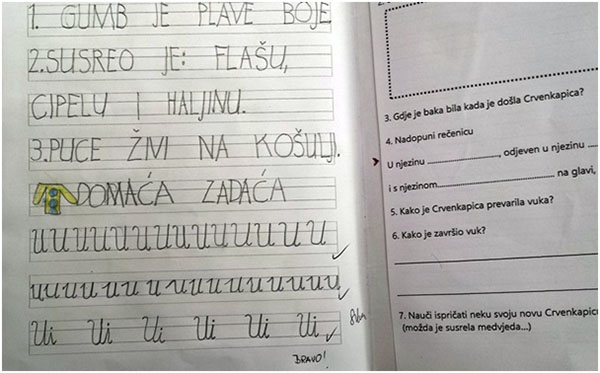 1. GUMB JE PLAVE BOJE
2.SUSREO JE: FLAŠU,
CIPELU I HALJINU.
3.PUCE ŽIVI NA KOŠULJI.
DOMAĆA ZADAĆA
U U U U U U U U U U U U U
u u u u u u u u u u u u u u
Ui Ui Ui Ui Ui Ui
BRAVO!
3. Gdje je baka bila kada je došla Crvenkapica?
4. Nadopuni rečenicu
U njezinu ...................., odjeven u njezinu ......
i s njezinom.............................. na glavi,
5. Kako je Crvenkapica prevarila vuka?
6. Kako je završio vuk?
7. Nauči ispričati neku svoju novu Crvenkapicu
(možda je susrela medvjeda...)